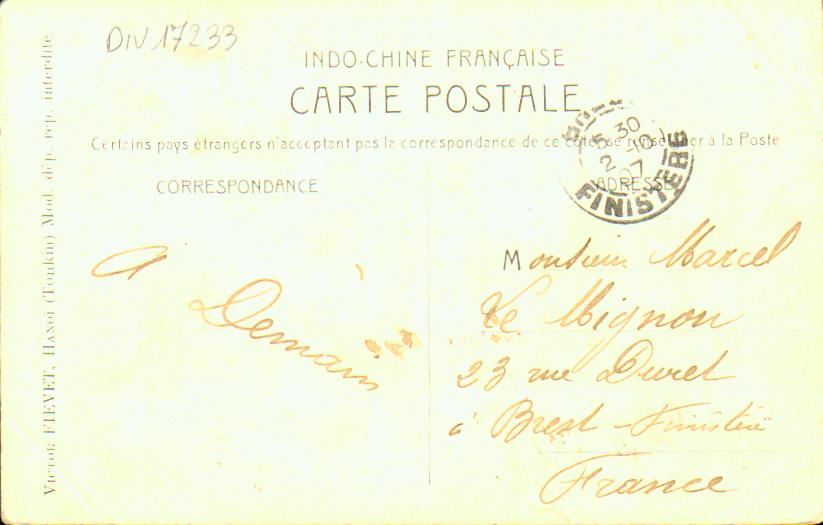 DIV 17233
INDO-CHINE FRANÇAISE
CARTE POSTALE
Certains pays étrangers n'acceptant pas la correspondance de ce côté, se renseigner à la Poste
CORRESPONDANCE
ADRESSE
5 30
2 -10
07
FINISTERE
A
Demain
Monsieur Marcel
Le Mignon
23 rue Duret
à Brest - Finistère
France
VICTOR FIEVET, HANOÏ (Tonkin) Mod. dép. rep. interdite